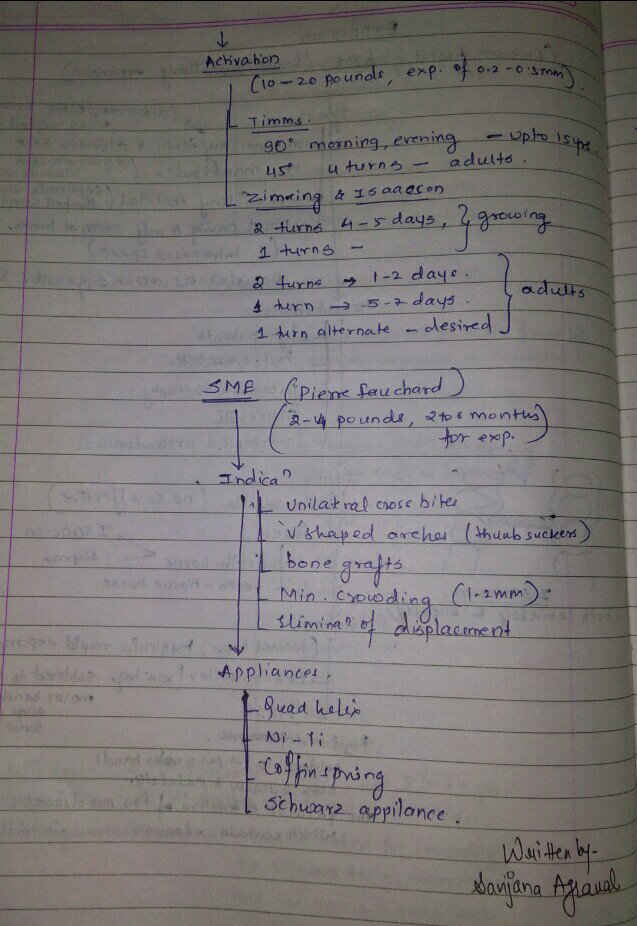 Activation
(10 - 20 pounds, exp. of 0.2 - 0.5mm).
Timms.
90° morning, evening - upto 15yrs.
45° 4 turns - adults.
Zimring & Isaacson
2 turns 4-5 days, } growing
1 turns -
2 turns → 1-2 days.
1 turn → 5-7 days. } adults
1 turn alternate - desired
SME (Pierre fauchard)
(2-4 pounds, 2 to 6 months
for exp.)
Indicaⁿ
Unilatral cross bites
'V' shaped arches (thumb suckers)
bone grafts
Min. crowding (1-2mm)
Eliminaⁿ of displacement
Appliances.
Quad helix
Ni-Ti
Coffin spring
Schwarz appilance.
Written by-
Sanjana Agrawal